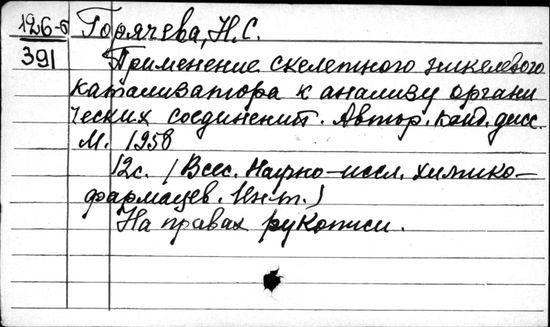 126-б Горячева, Н.С.
391
Применение скелетного никелевого
катализатора к анализу органи
ческих соединений. Автор. канд. дисс.
М. 1958
12с. (Всес. Научно-иссл. химико-
фармацев. Ин-т.)
На правах рукописи.